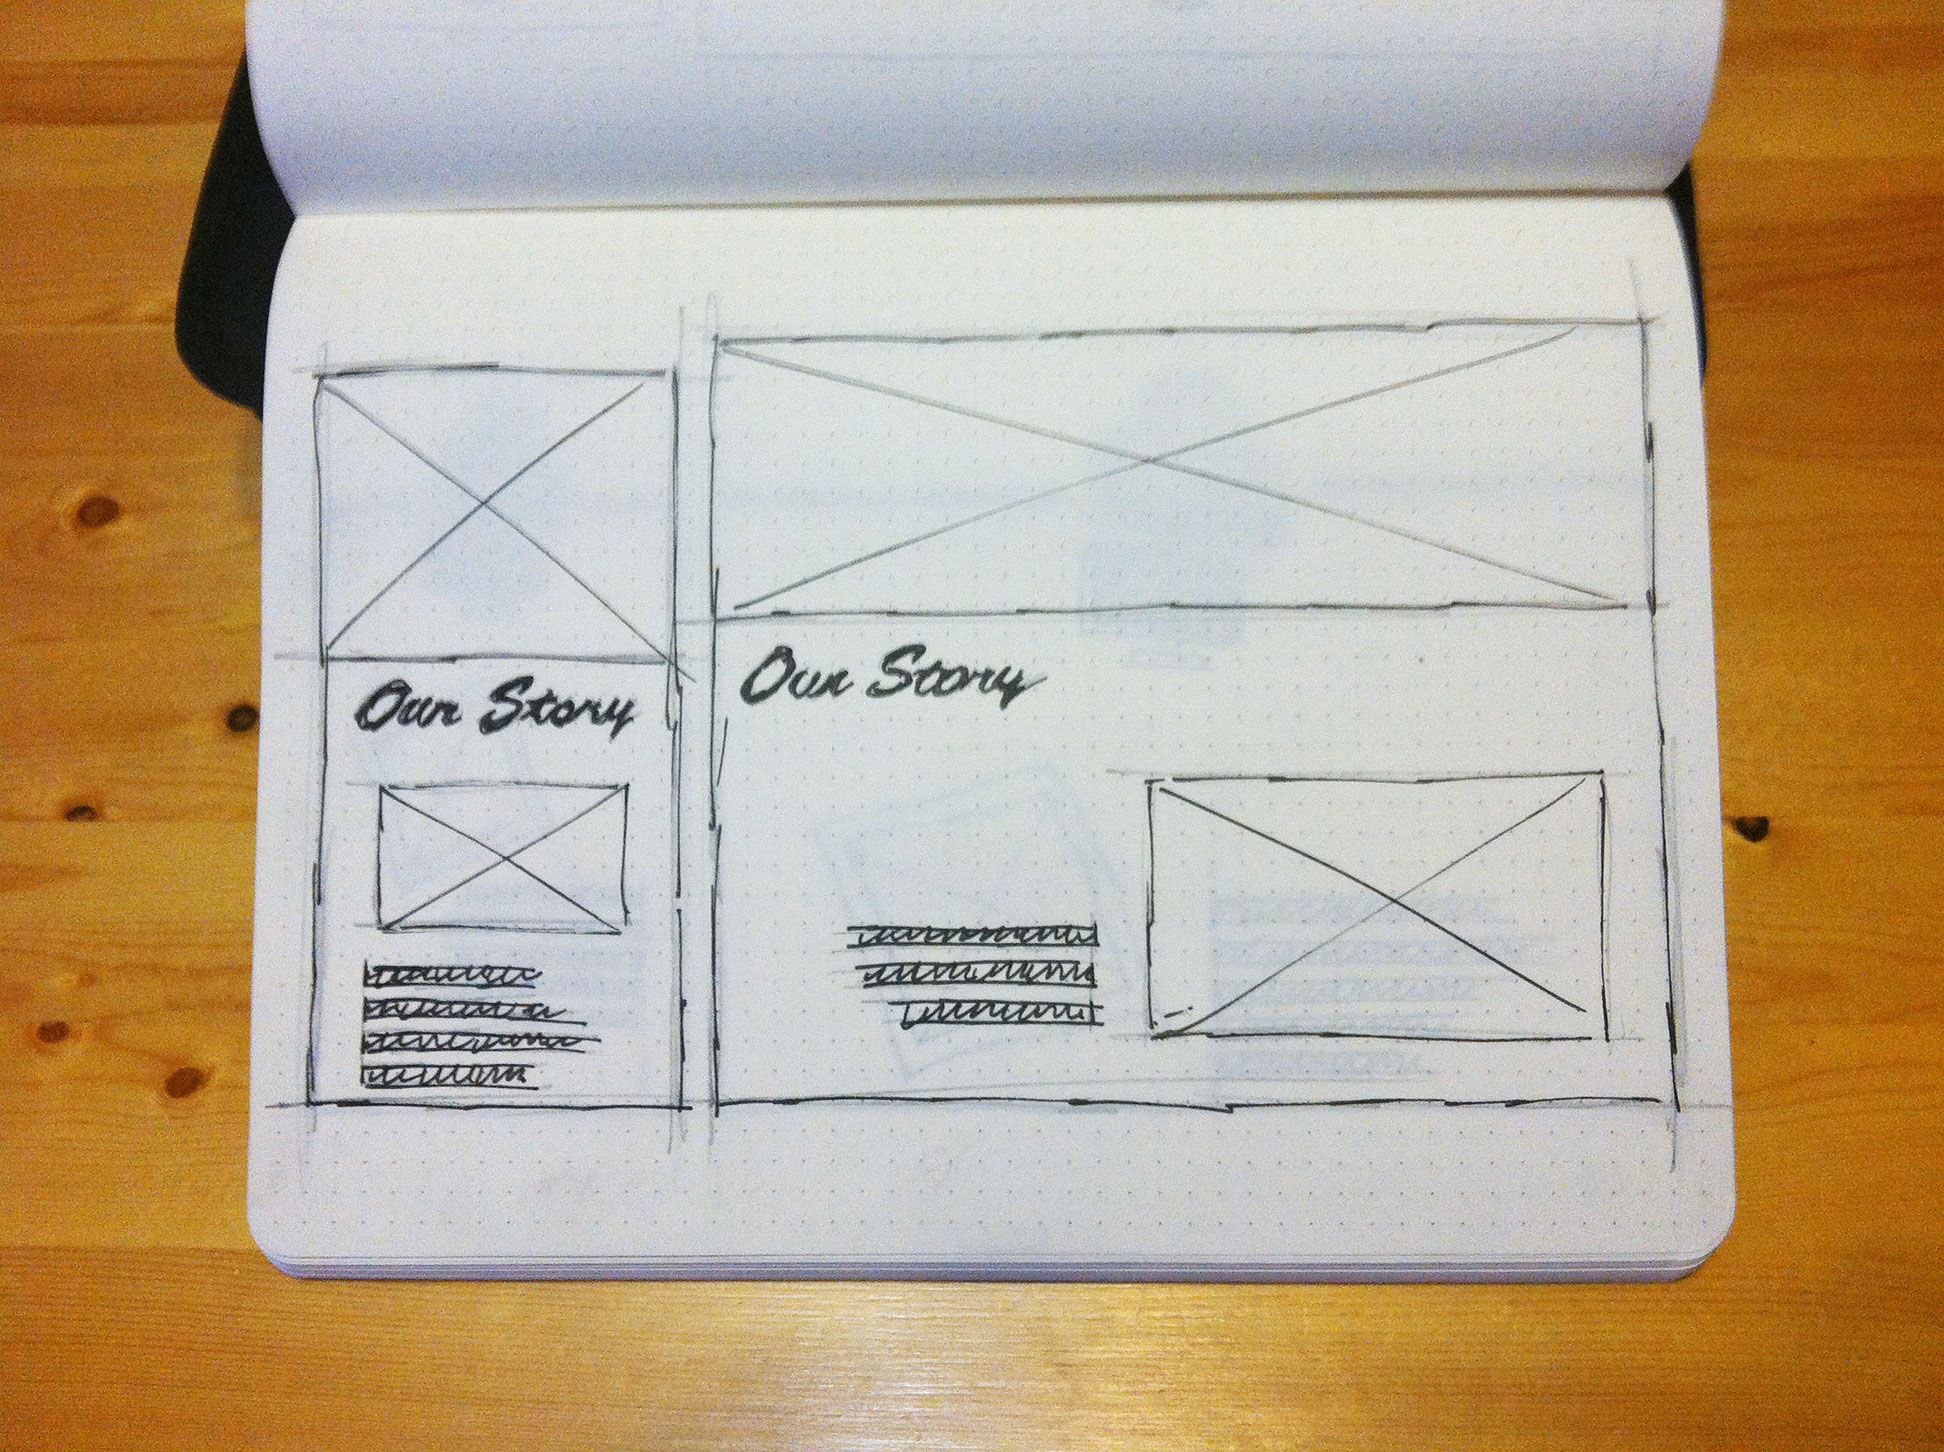 Our Story
Our Story